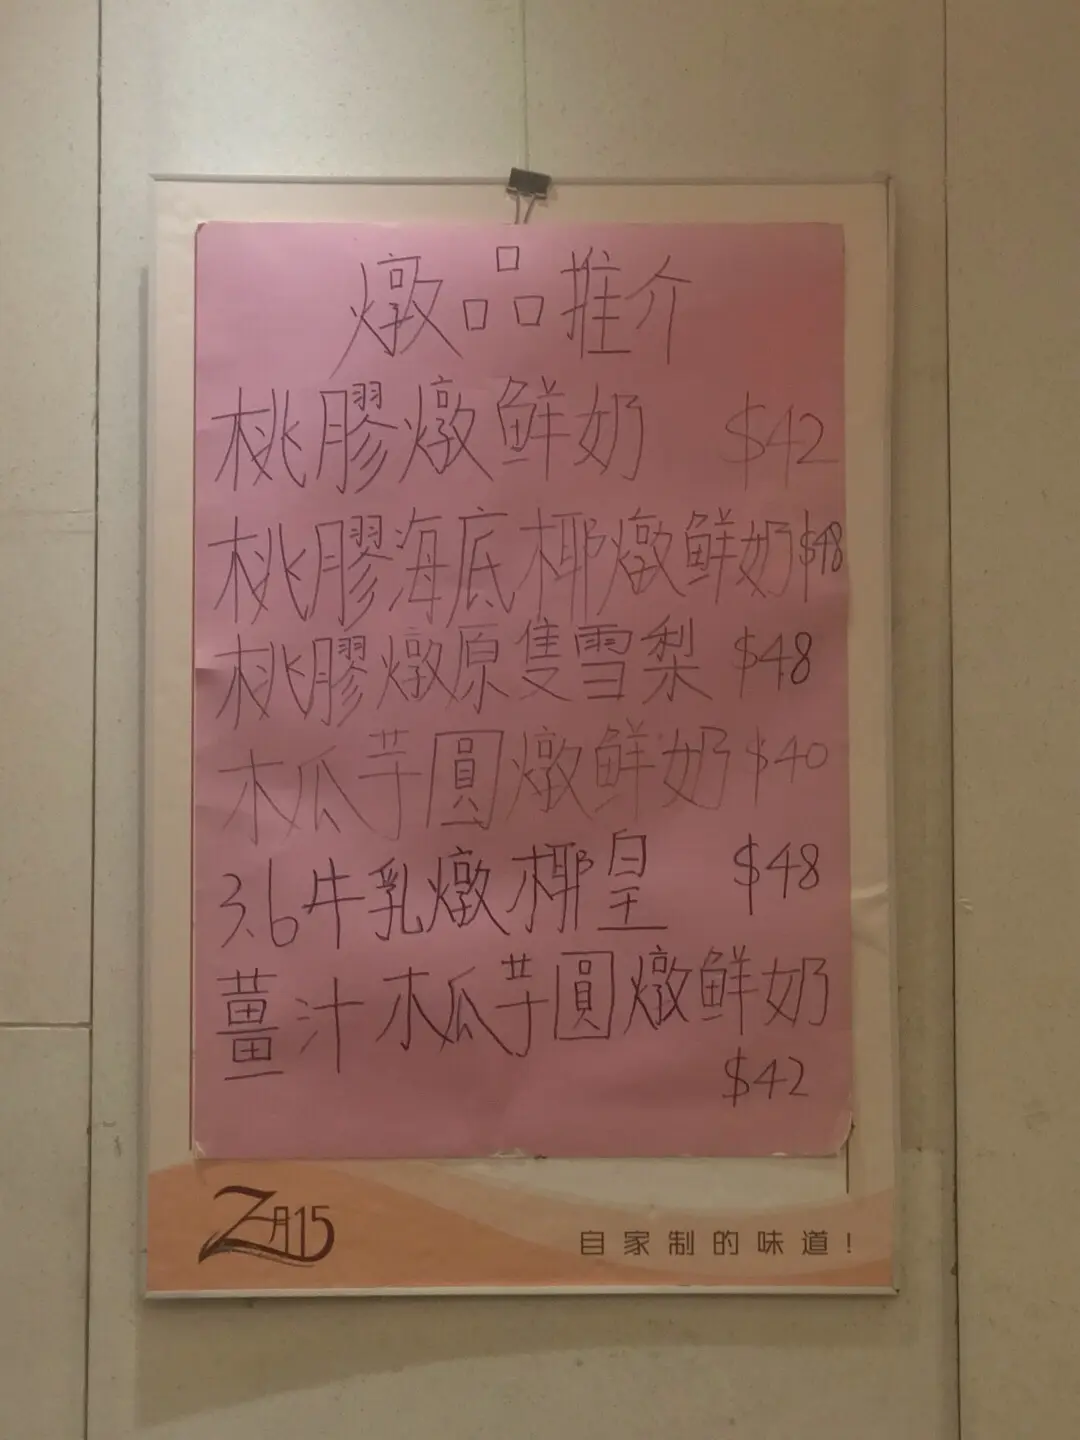 燉品推介
桃膠燉鮮奶 $42
桃膠海底椰燉鮮奶 $48
桃膠燉原隻雪梨 $48
木瓜芋圓燉鮮奶 $40
3.6牛乳燉椰皇 $48
薑汁木瓜芋圓燉鮮奶
$42
Z月15
自家制的味道!